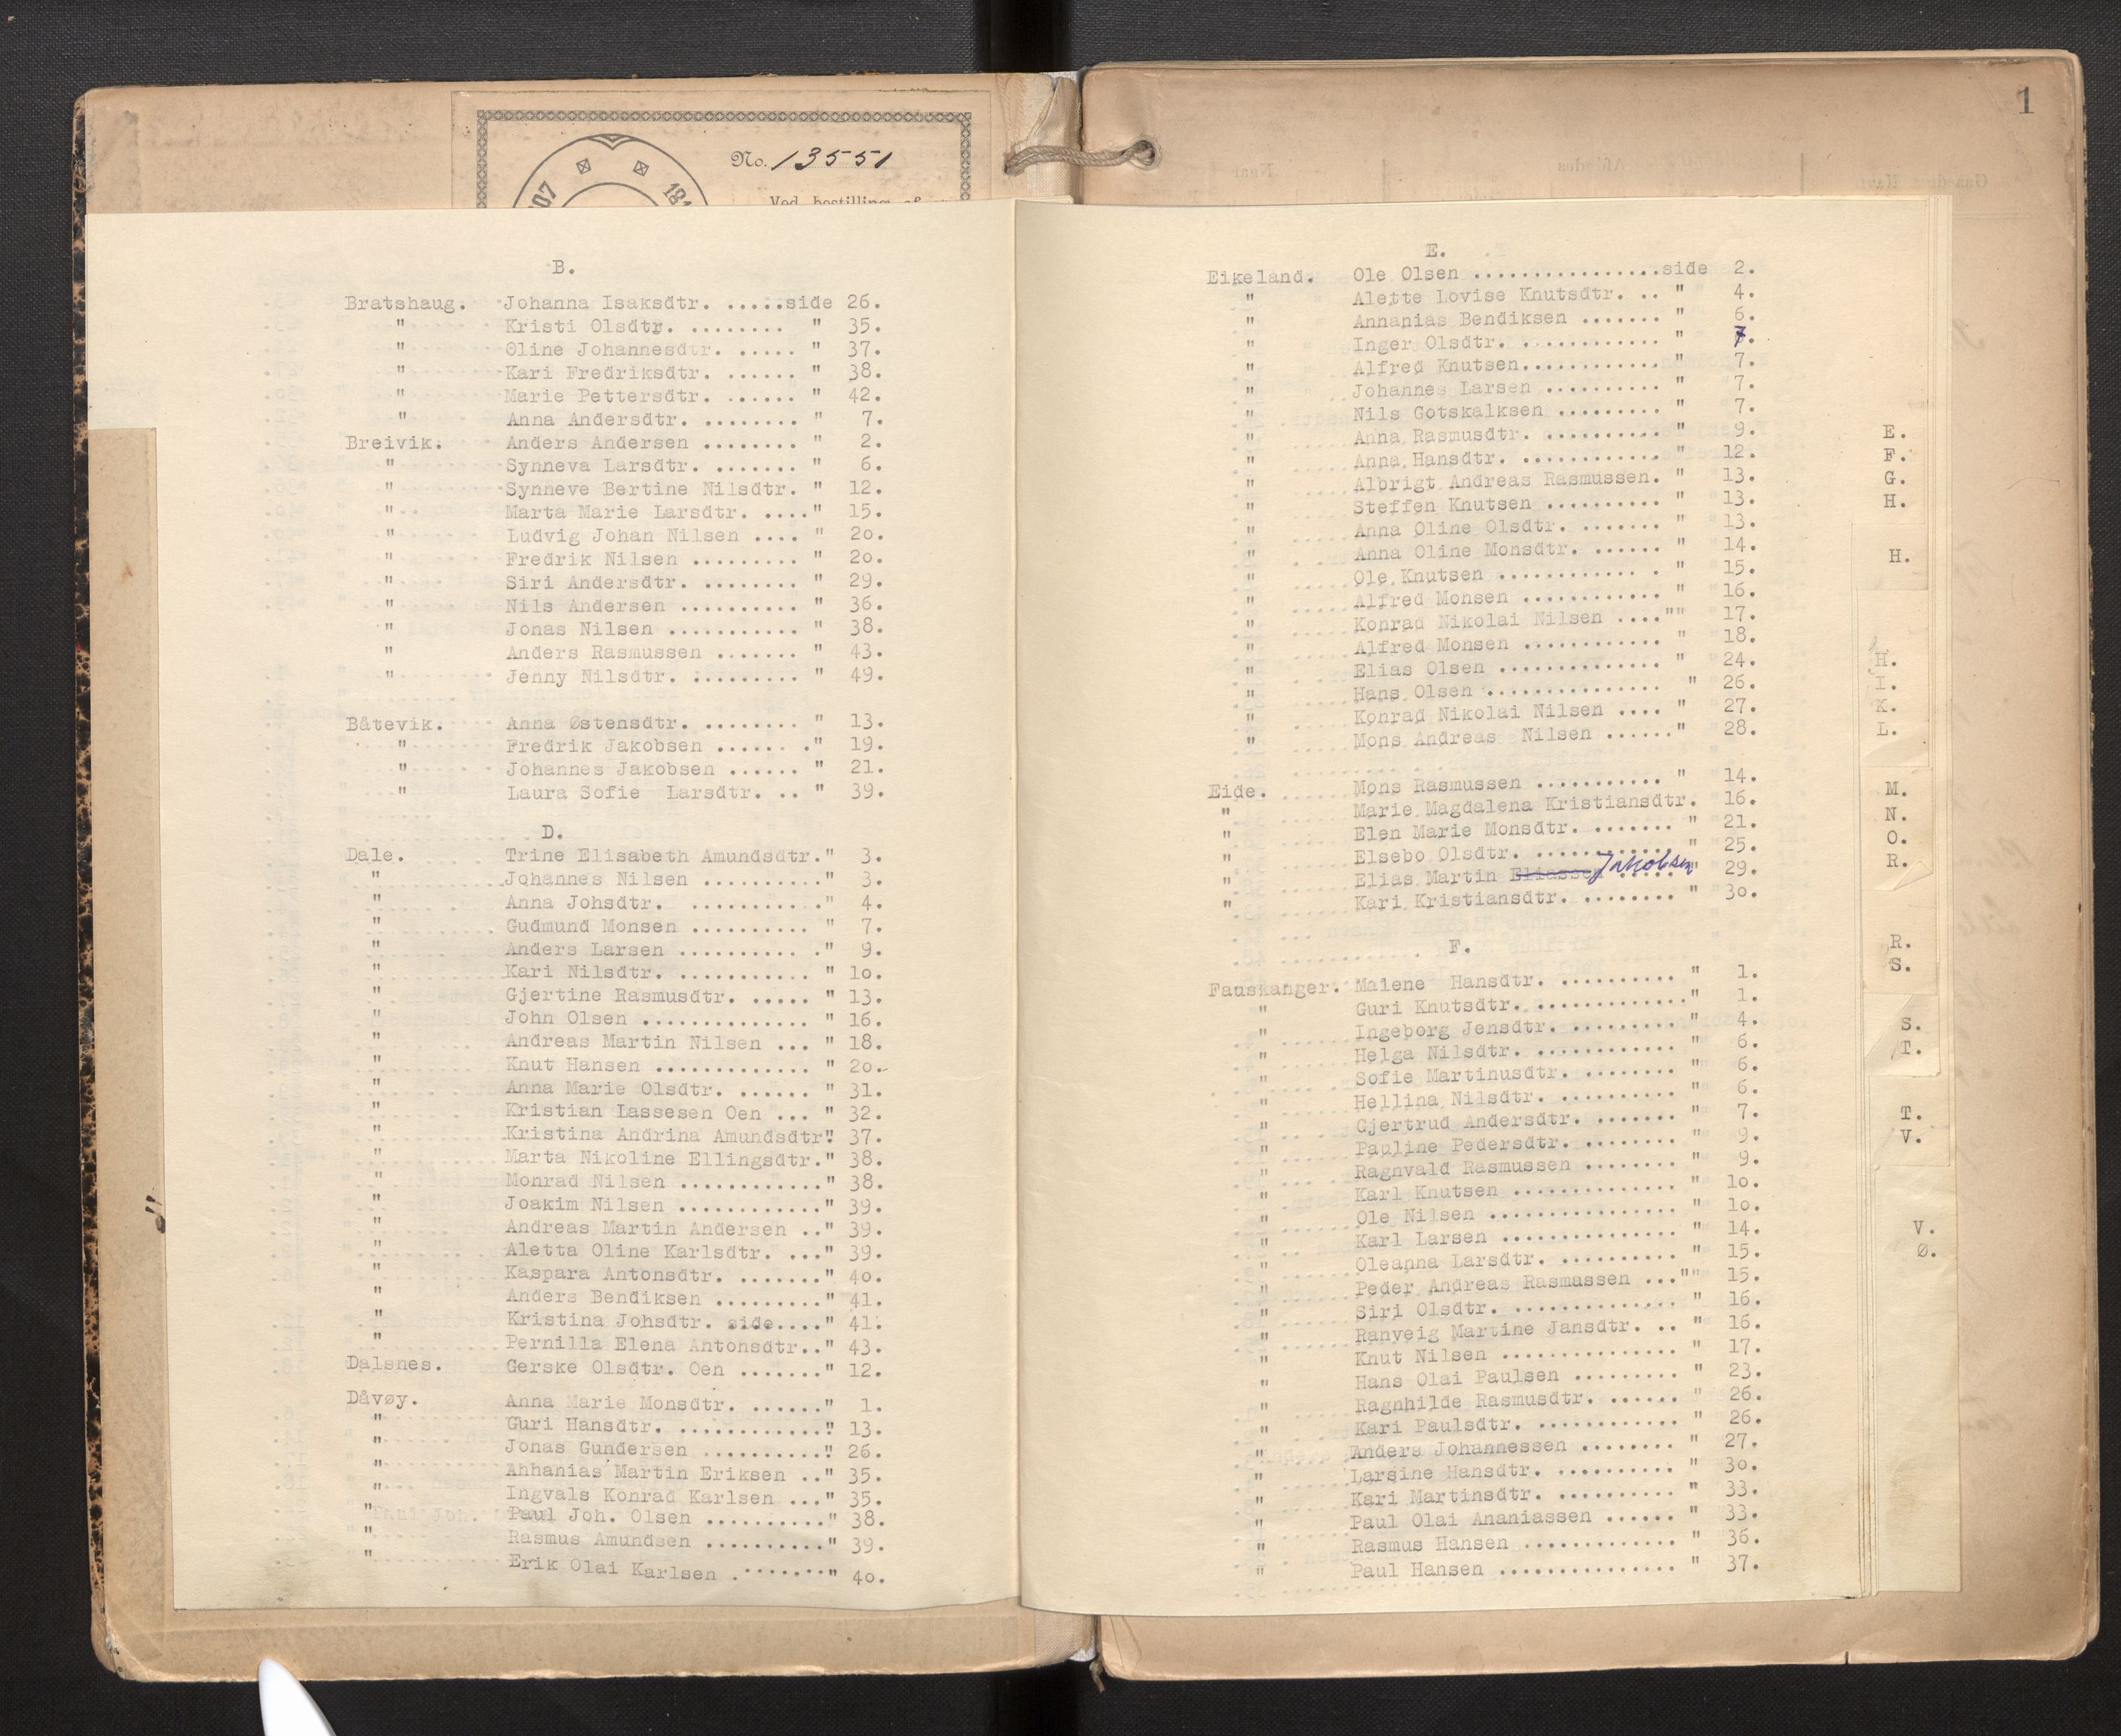 No. 13551
Ved bestilling af
B.
Bratshaug. Johanna Isaksdtr. .....side 26.
" Kristi Olsdtr. ........ " 35.
" Oline Johannesdtr. ..... " 37.
" Kari Fredriksdtr. ...... " 38.
" Marie Pettersdtr. ...... " 42.
" Anna Andersdtr. ........ " 7.
Breivik. Anders Andersen ........ " 2.
" Synneva Larsdtr. ....... " 6.
" Synneve Bertine Nilsdtr. " 12.
" Marta Marie Larsdtr. ...." 15.
" Ludvig Johan Nilsen .... " 2o.
" Fredrik Nilsen ......... " 2o.
" Siri Andersdtr. ........ " 29.
" Nils Andersen .......... " 36.
" Jonas Nilsen ........... " 38.
" Anders Rasmussen ....... " 43.
" Jenny Nilsdtr. ......... " 49.
Båtevik. Anna Østensdtr. ........ " 13.
" Fredrik Jakobsen ...... ." 19.
" Johannes Jakobsen ...... " 21.
" Laura Sofie Larsdtr. .. " 39.
D.
Dale. Trine Elisabeth Amundsdtr." 3.
" Johannes Nilsen .........." 3.
" Anna Johsdtr. ..........." 4.
" Gudmund Monsen .......... " 7.
" Anders Larsen .......... ." 9.
" Kari Nilsdtr. ........... " 1o.
" Gjertine Rasmusdtr. ..... " 13.
" John Olsen .............. " 16.
" Andreas Martin Nilsen ... " 18.
" Knut Hansen ............. " 2o.
" Anna Marie Olsdtr. ...... " 31.
" Kristian Lassesen Oen ... " 32.
" Kristina Andrina Amundsdtr." 37.
" Marta Nikoline Ellingsdtr." 38.
" Monrad Nilsen ............" 38.
" Joakim Nilsen ............" 39.
" Andreas Martin Andersen .." 39.
" Aletta Oline Karlsdtr. ..." 39.
" Kaspara Antonsdtr. ......." 4o.
" Anders Bendiksen ........." 41.
" Kristina Johsdtr. side...." 41.
" Pernilla Elena Antonsdtr.." 43.
Dalsnes. Gerske Olsdtr. Oen ......." 12.
Dåvøy. Anna Marie Monsdtr. ......" 1.
" Guri Hansdtr. ............." 13.
" Jonas Gundersen .........." 26.
" Ahhanias Martin Eriksen .." 35.
" Ingvals Konrad Karlsen ..." 35.
" Paul Joh. Olsen .........." 38.
" Rasmus Amundsen .........." 39.
" Erik Olai Karlsen ........" 4o.
1
E.
Eikeland. Ole Olsen ................side 2.
" Alette Lovise Knutsdtr. .. " 4.
" Annanias Bendiksen ....... " 6.
" Inger Olsdtr. ............ " 7.
" Alfred Knutsen............ " 7.
" Johannes Larsen .......... " 7.
" Nils Gotskalksen ......... " 7.
" Anna Rasmusdtr. .......... " 9.
" Anna Hansdtr. ............ " 12.
" Albrigt Andreas Rasmussen. " 13.
" Steffen Knutsen .......... " 13.
" Anna Oline Olsdtr. ....... " 13.
" Anna Oline Monsdtr. ...... " 14.
" Ole Knutsen ............ . " 15.
" Alfred Monsen ............ " 16.
" Konrad Nikolai Nilsen ...."" 17.
" Alfred Monsen ............ " 18.
" Elias Olsen .............. " 24.
" Hans Olsen ............... " 26.
" Konrad Nikolai Nilsen .... " 27.
" Mons Andreas Nilsen ......" 28.
Eide. Mons Rasmussen ........... " 14.
" Marie Magdalena Kristiansdtr. 16.
" Elen Marie Monsdtr. ....... " 21.
" Elsebo Olsdtr. ........... " 25.
" Elias Martin Eliassen Jakobsen ..... " 29.
" Kari Kristiansdtr. ........ " 3o.
F.
Fauskanger. Malene Hansdtr. .......... " 1.
" Guri Knutsdtr. ............." 1.
" Ingeborg Jensdtr. ......... " 4.
" Helga Nilsdtr. ............ " 6.
" Sofie Martinusdtr. ........ " 6.
" Hellina Nilsdtr. .......... " 6.
" Gjertrud Andersdtr. ....... " 7.
" Pauline Pedersdtr. ........ " 9.
" Ragnvald Rasmussen ........ " 9.
" Karl Knutsen .............. " 1o.
" Ole Nilsen ................ " 1o.
" Karl Larsen ............... " 14.
" Oleanna Larsdtr. .......... " 15.
" Peder Andreas Rasmassen ..."" 15.
" Siri Olsdtr. .............. " 16.
" Ranveig Martine Jansdtr. .. " 16.
" Knut Nilsen ............... " 17.
" Hans Olai Paulsen ......... " 23.
" Ragnhilde Rasmusdtr. ...... " 26.
" Kari Paulsdtr. ............ " 26.
" Anders Johannessen ........ " 27.
" Larsine Hansdtr. .......... " 3o.
" Kari Martinsdtr. .......... " 33.
" Paul Olai Ananiassen ...... " 33.
" Rasmus Hansen ............. " 36.
" Paul Hansen ............... " 37.
E.
F.
G.
H.
H.
H.
I.
K.
L.
M.
N.
O.
R.
R.
S.
S.
T.
T.
V.
V.
Ø.